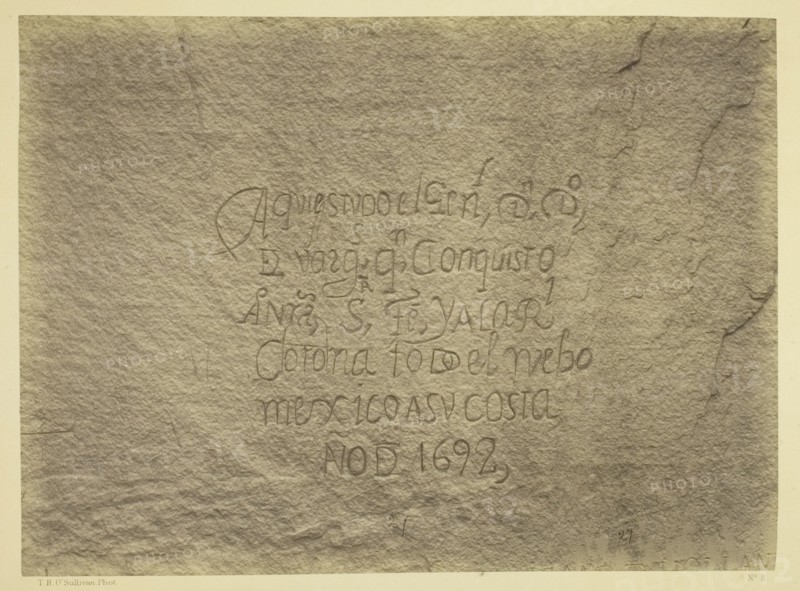 Aqui estvDO el Genl, Dn. Do,
D varg.s qn, Conquisto
ANra, S, Fe, YALaRl
Corona toDO el nvebo
mexico ASV costa
ÑO D 1692,
21
27
T. H. O'Sullivan, Phot.